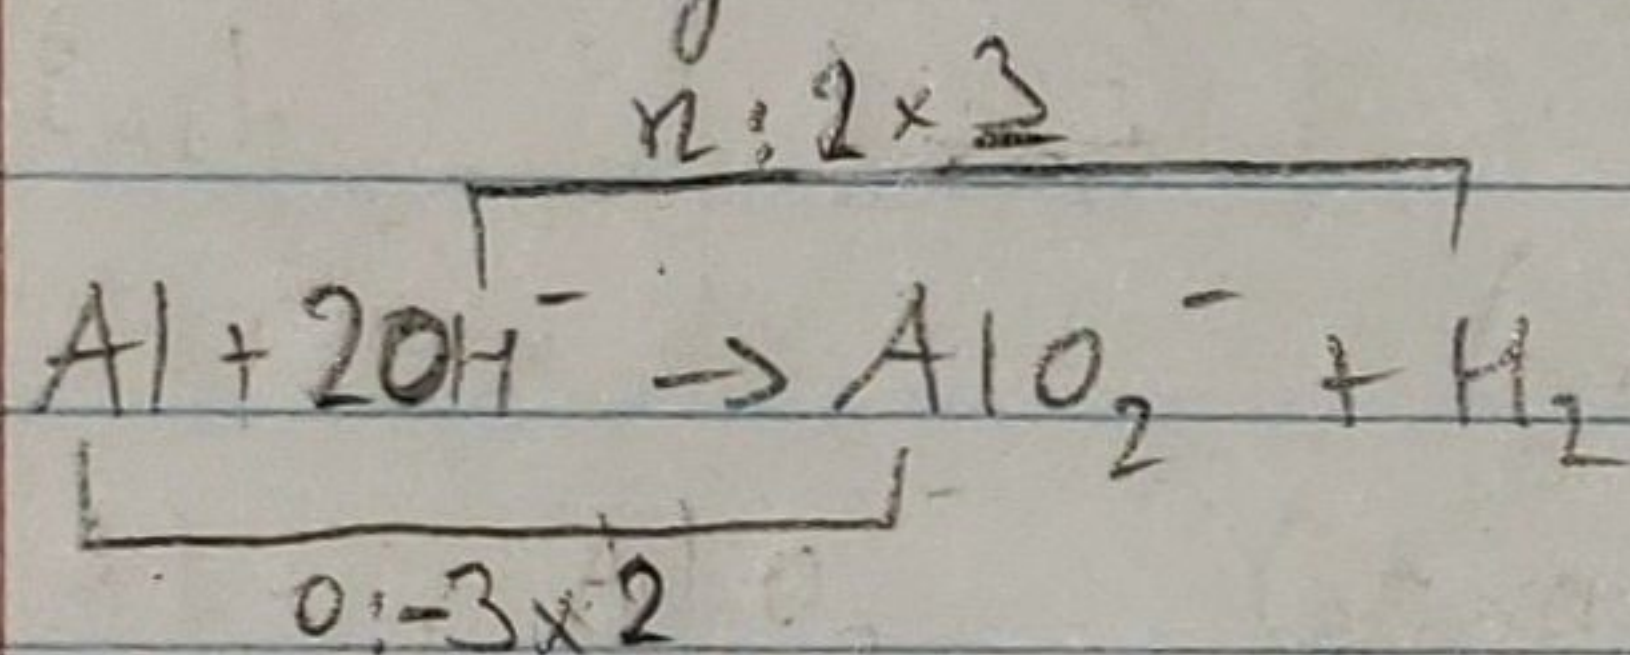 n : 2 × 3
Al + 2OH⁻ → AlO₂⁻ + H₂
0 : -3 × 2